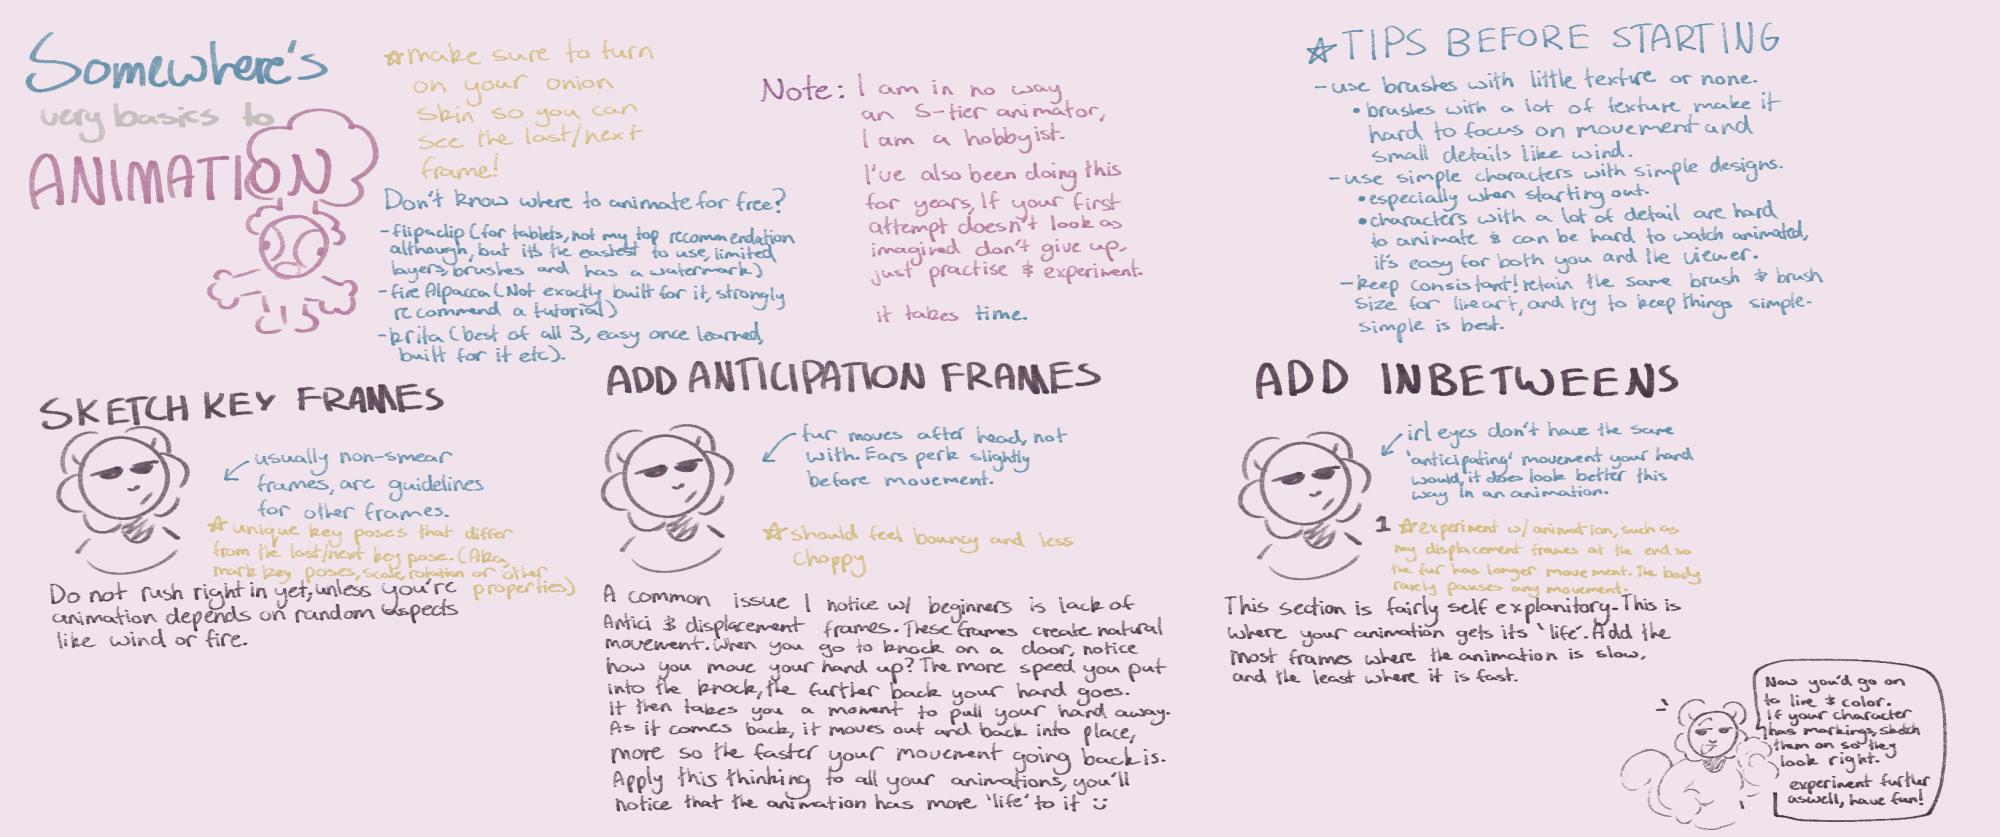 Somewhere's
very basics to
ANIMATION
☆make sure to turn
on your onion
skin so you can
see the last/next
frame!
Don't know where to animate for free?
-flipaclip (for tablets, not my top recommendation
although, but it's the easiest to use, limited
layers, brushes and has a watermark)
-fire Alpacca (Not exactly built for it, strongly
recommend a tutorial)
-krita (best of all 3, easy once learned,
built for it etc).
Note: I am in no way
an S-tier animator,
I am a hobbyist.
I've also been doing this
for years, If your first
attempt doesn't look as
imagined don't give up,
just practise & experiment.
it takes time.
☆TIPS BEFORE STARTING
-use brushes with little texture or none.
•brushes with a lot of texture make it
hard to focus on movement and
small details like wind.
-use simple characters with simple designs.
•especially when starting out.
•characters with a lot of detail are hard
to animate & can be hard to watch animated,
it's easy for both you and the viewer.
-keep consistant! retain the same brush & brush
size for lineart, and try to keep things simple-
simple is best.
SKETCH KEY FRAMES
usually non-smear
frames, are guidelines
for other frames.
☆unique key poses that differ
from the last/next key pose. (Aka,
mark key poses, scale, rotation or other
properties)
Do not rush right in yet, unless you're
animation depends on random aspects
like wind or fire.
ADD ANTICIPATION FRAMES
fur moves after head, not
with. Ears perk slightly
before movement.
☆should feel bouncy and less
choppy
A common issue I notice w/ beginners is lack of
Antici & displacement frames. These frames create natural
movement. When you go to knock on a door, notice
how you move your hand up? The more speed you put
into the knock, the further back your hand goes.
it then takes you a moment to pull your hand away.
As it comes back, it moves out and back into place,
more so the faster your movement going back is.
Apply this thinking to all your animations, you'll
notice that the animation has more 'life' to it :)
ADD INBETWEENS
irl eyes don't have the same
'anticipating' movement your hand
would, it does look better this
way in an animation.
1
☆experiment w/ animation, such as
my displacement frames at the end so
the fur has longer movement. The body
rarely pauses any movement.
This section is fairly self explanitory. This is
where your animation gets its 'life'. Add the
most frames where the animation is slow,
and the least where it is fast.
Now you'd go on
to line & color.
if your character
has markings, sketch
them on so they
look right.
experiment further
aswell, have fun!